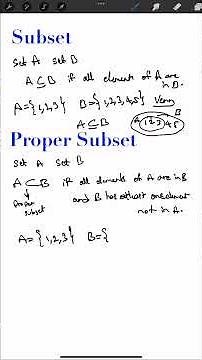 Subset
Set A Set B
A ⊆ B if all elements of A are
in B.
A = {1,2,3} B = {1,2,3,4,5} Venn
A ⊆ B A 1 2 3 4 5 B
Proper Subset
Set A Set B
A ⊂ B if all elements of A are in B
Proper
subset
and B has atleast one element
not in A.
A = {1,2,3} B = {